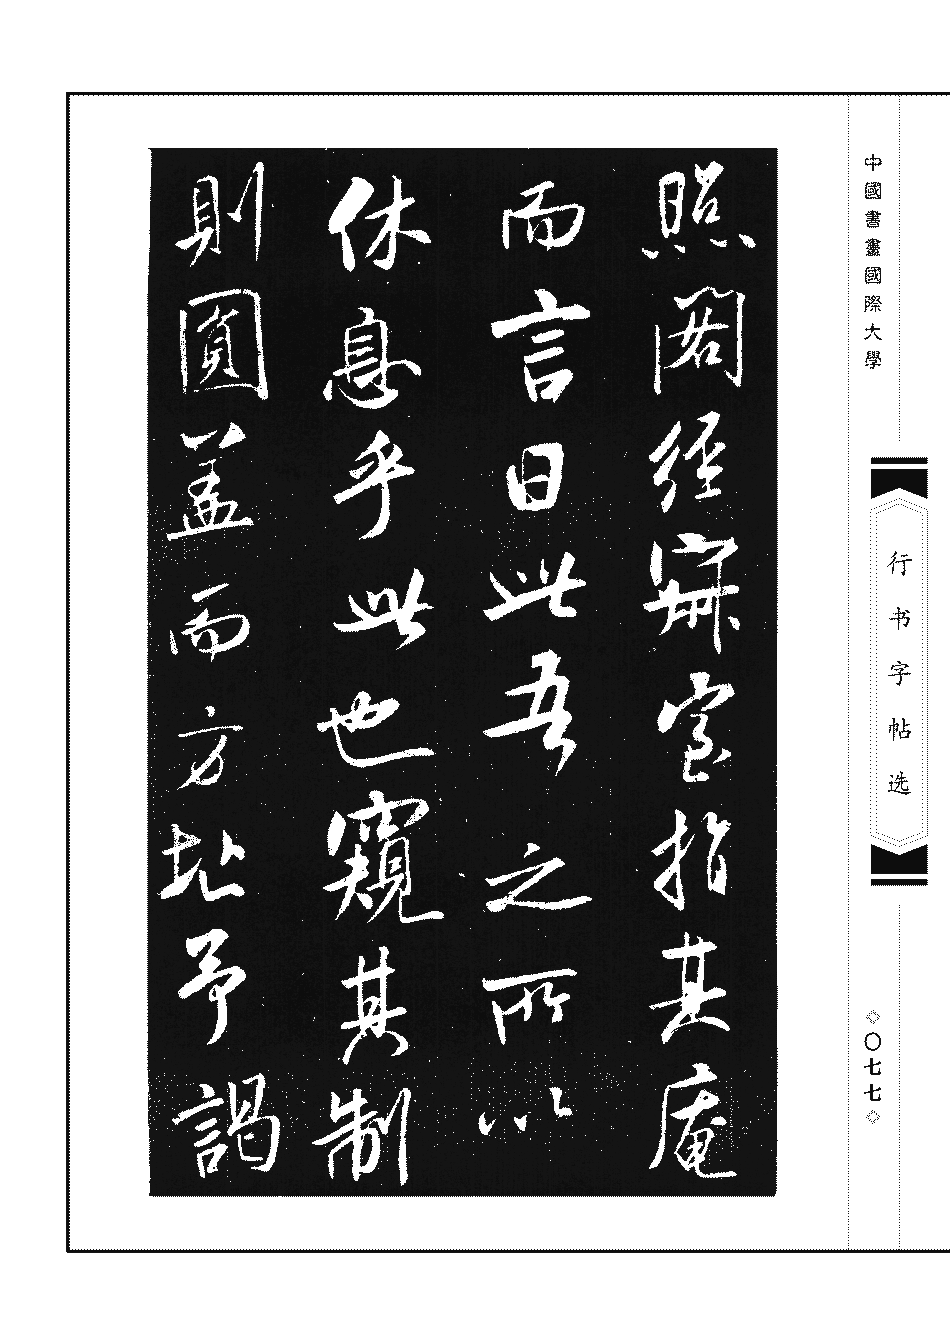 照閣經寮室指其庵
而言曰此吾之所以
休息乎此也窺其制
則圓蓋而方址予謁
中國書畫國際大學
行书字帖选
〇七七